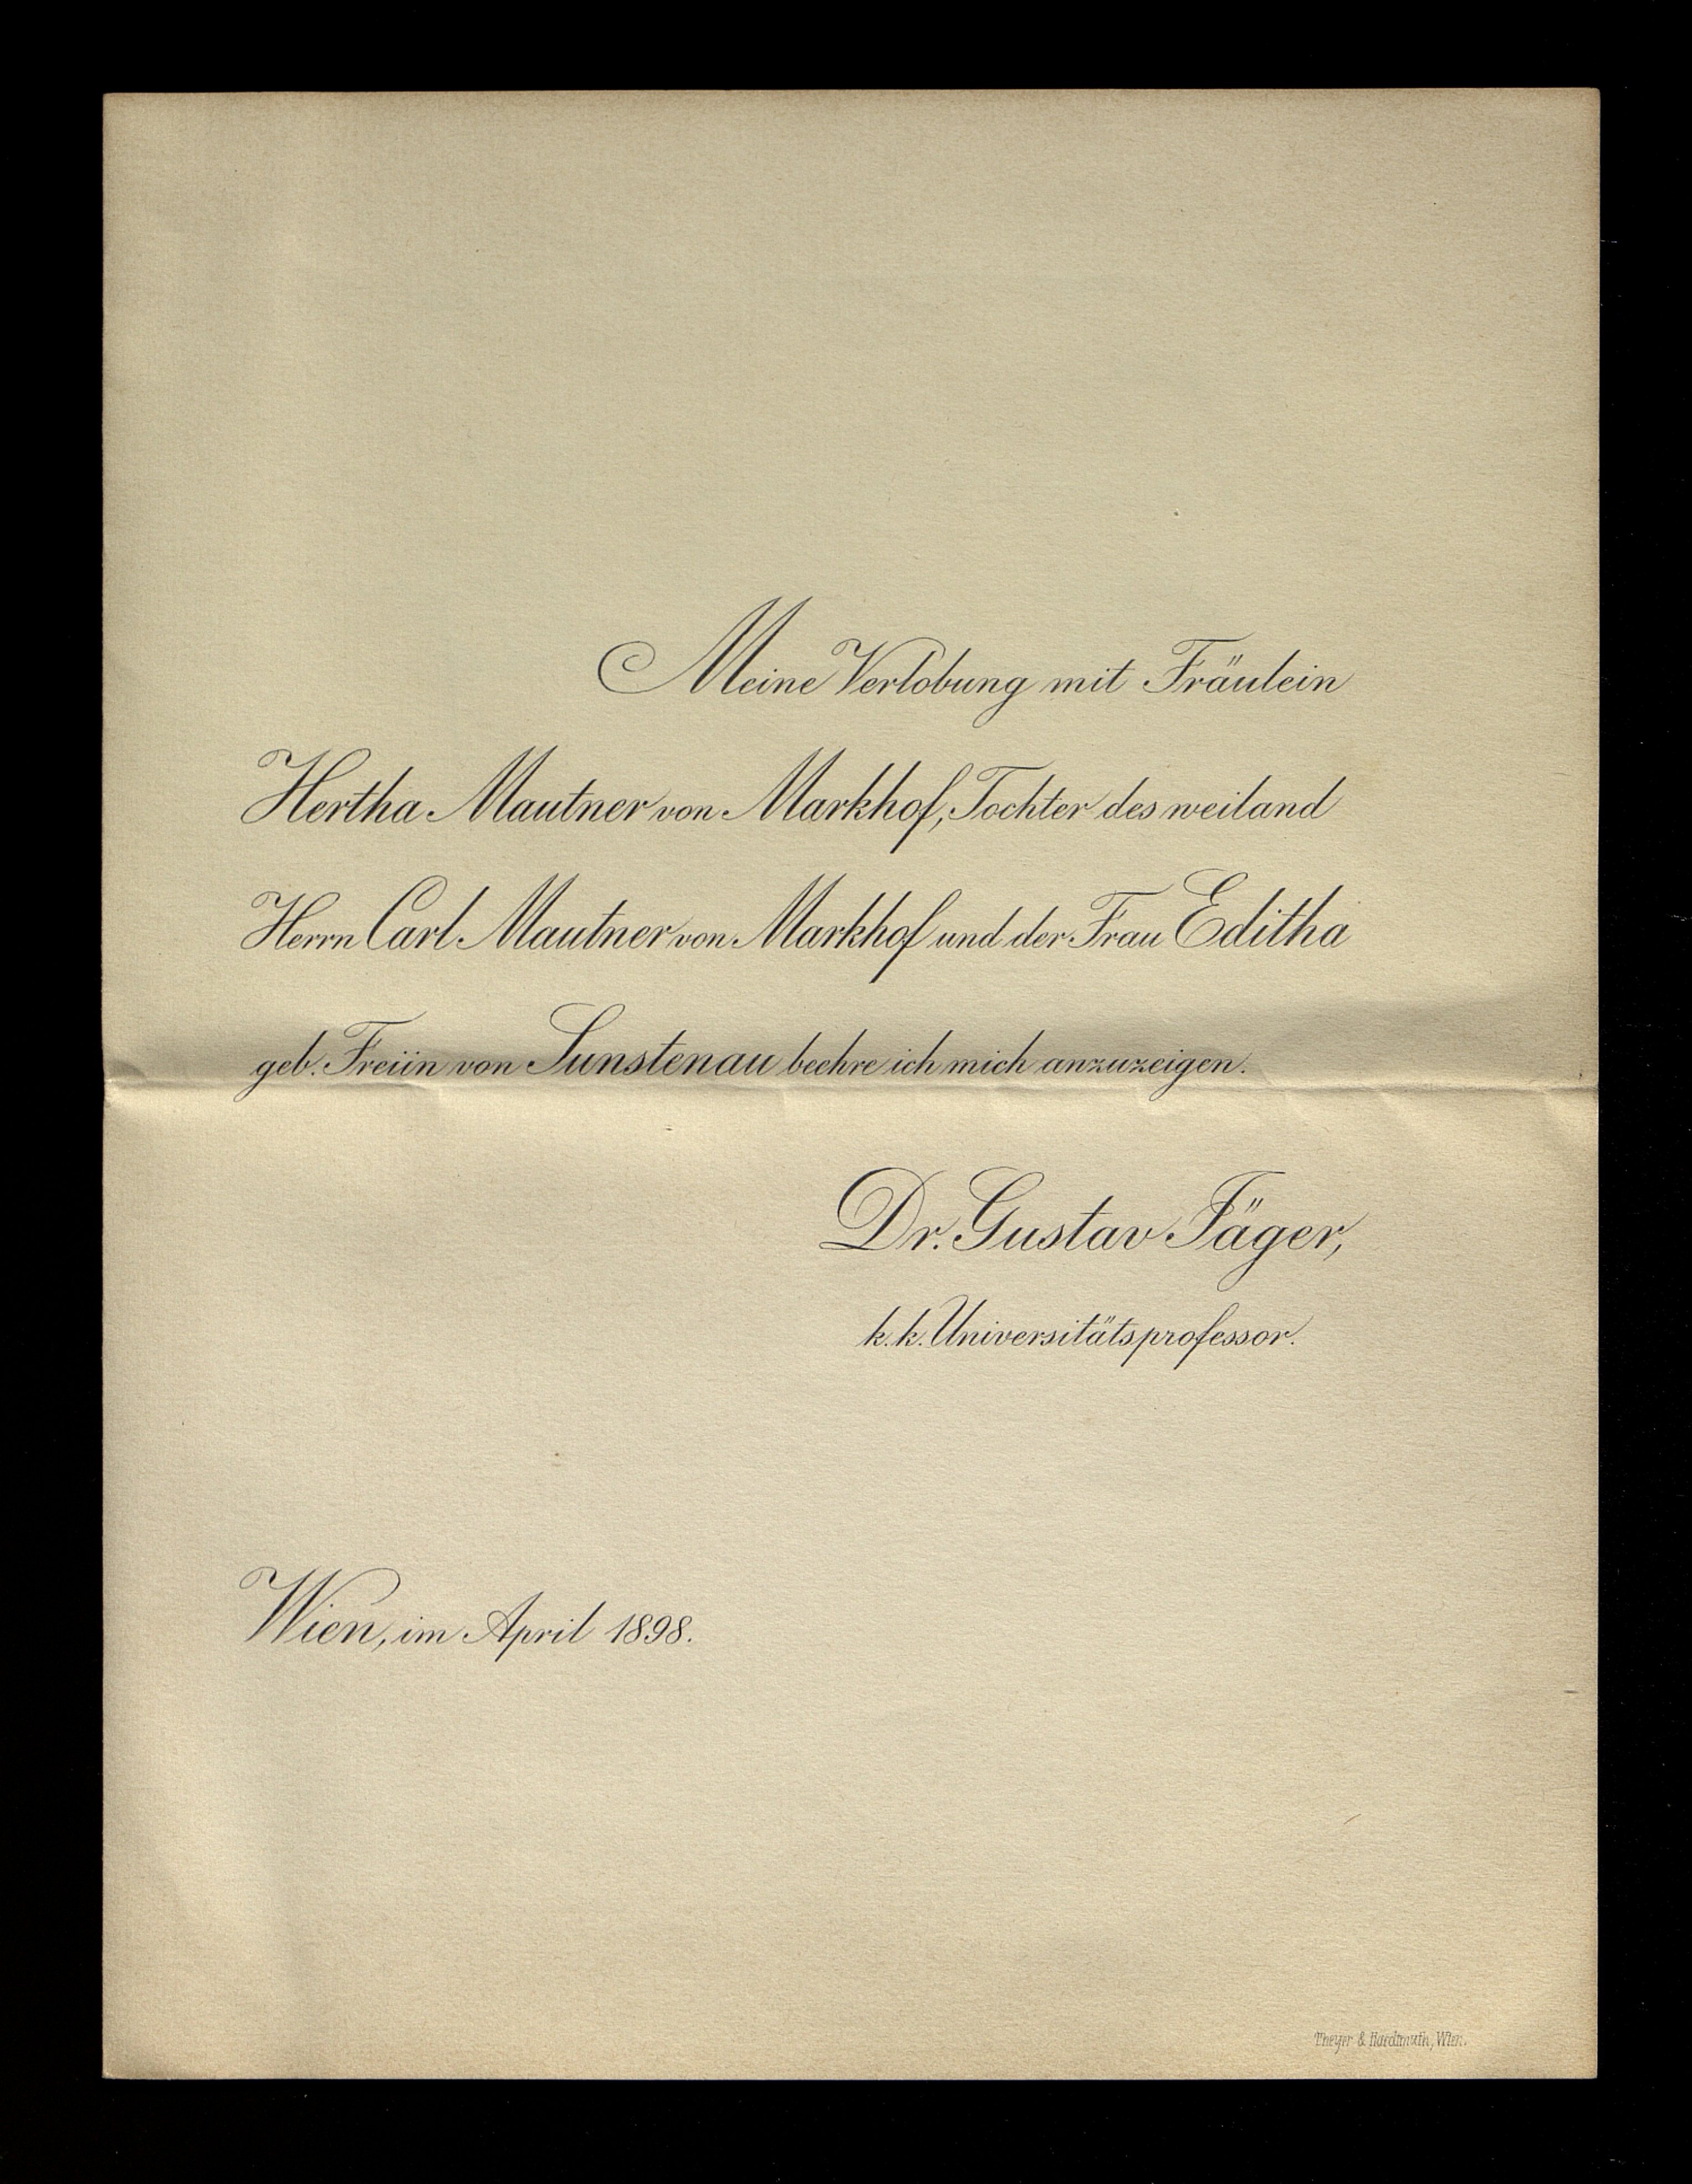 Meine Verlobung mit Fräulein
Hertha Mautner von Markhof, Tochter des weiland
Herrn Carl Mautner von Markhof und der Frau Editha
geb. Freiin von Sunstenau beehre ich mich anzuzeigen.
Dr. Gustav Jäger,
k. k. Universitätsprofessor.
Wien, im April 1898.
Theyer & Hardtmuth, Wien.